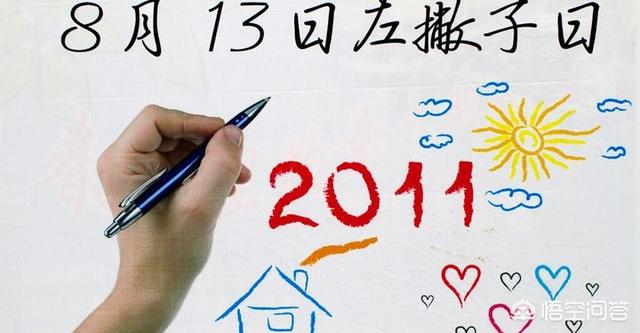 8月13日左撇子日
2011
悟空问答